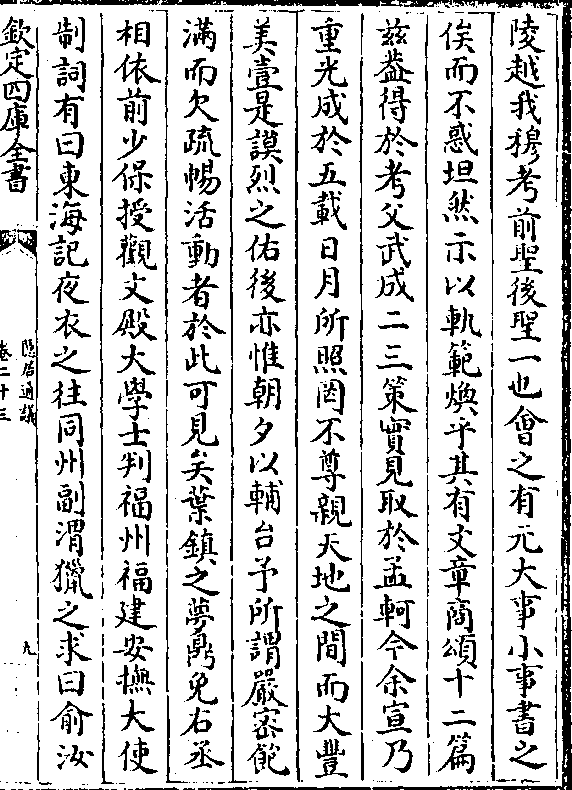 陵越我穆考前聖後聖一也會之有元大事小事書之
俟而不惑坦然示以軌範煥乎其有文章商頌十二篇
茲葢得於考父武成二三策實見取於孟軻今余宣乃
重光成於五載日月所照罔不尊親天地之間而大豐
美壹是謨烈之佑後亦惟朝夕以輔台予所謂嚴宻飽
滿而欠疏暢活動者於此可見矣葉鎮之夢鼎免右丞
相依前少保授觀文殿大學士判福州福建安撫大使
制詞有曰東海記夜衣之往同州副渭獵之求曰俞汝
欽定四庫全書
隠居通議
卷二十三
九